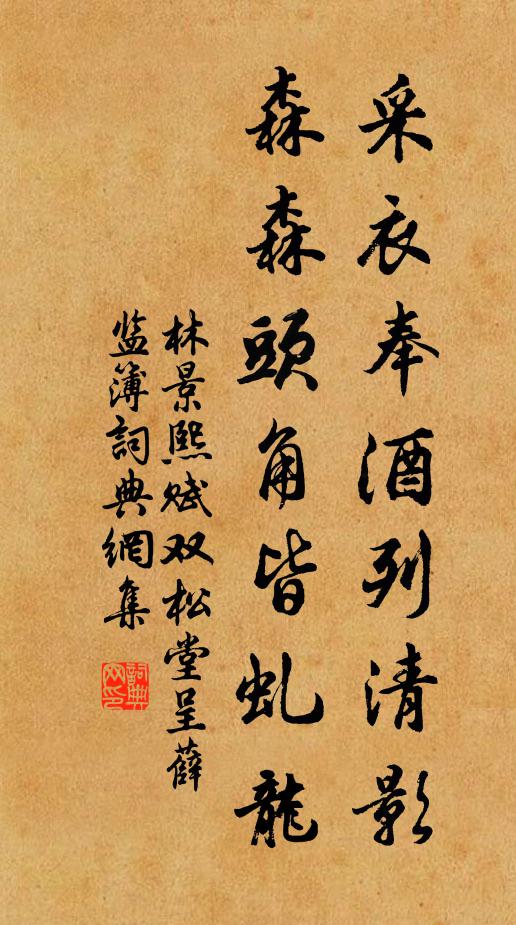 采衣奉酒列清影
森森頭角皆虬龍
林景熙賦双松堂呈薛
监簿詞典網集
詞典
网印